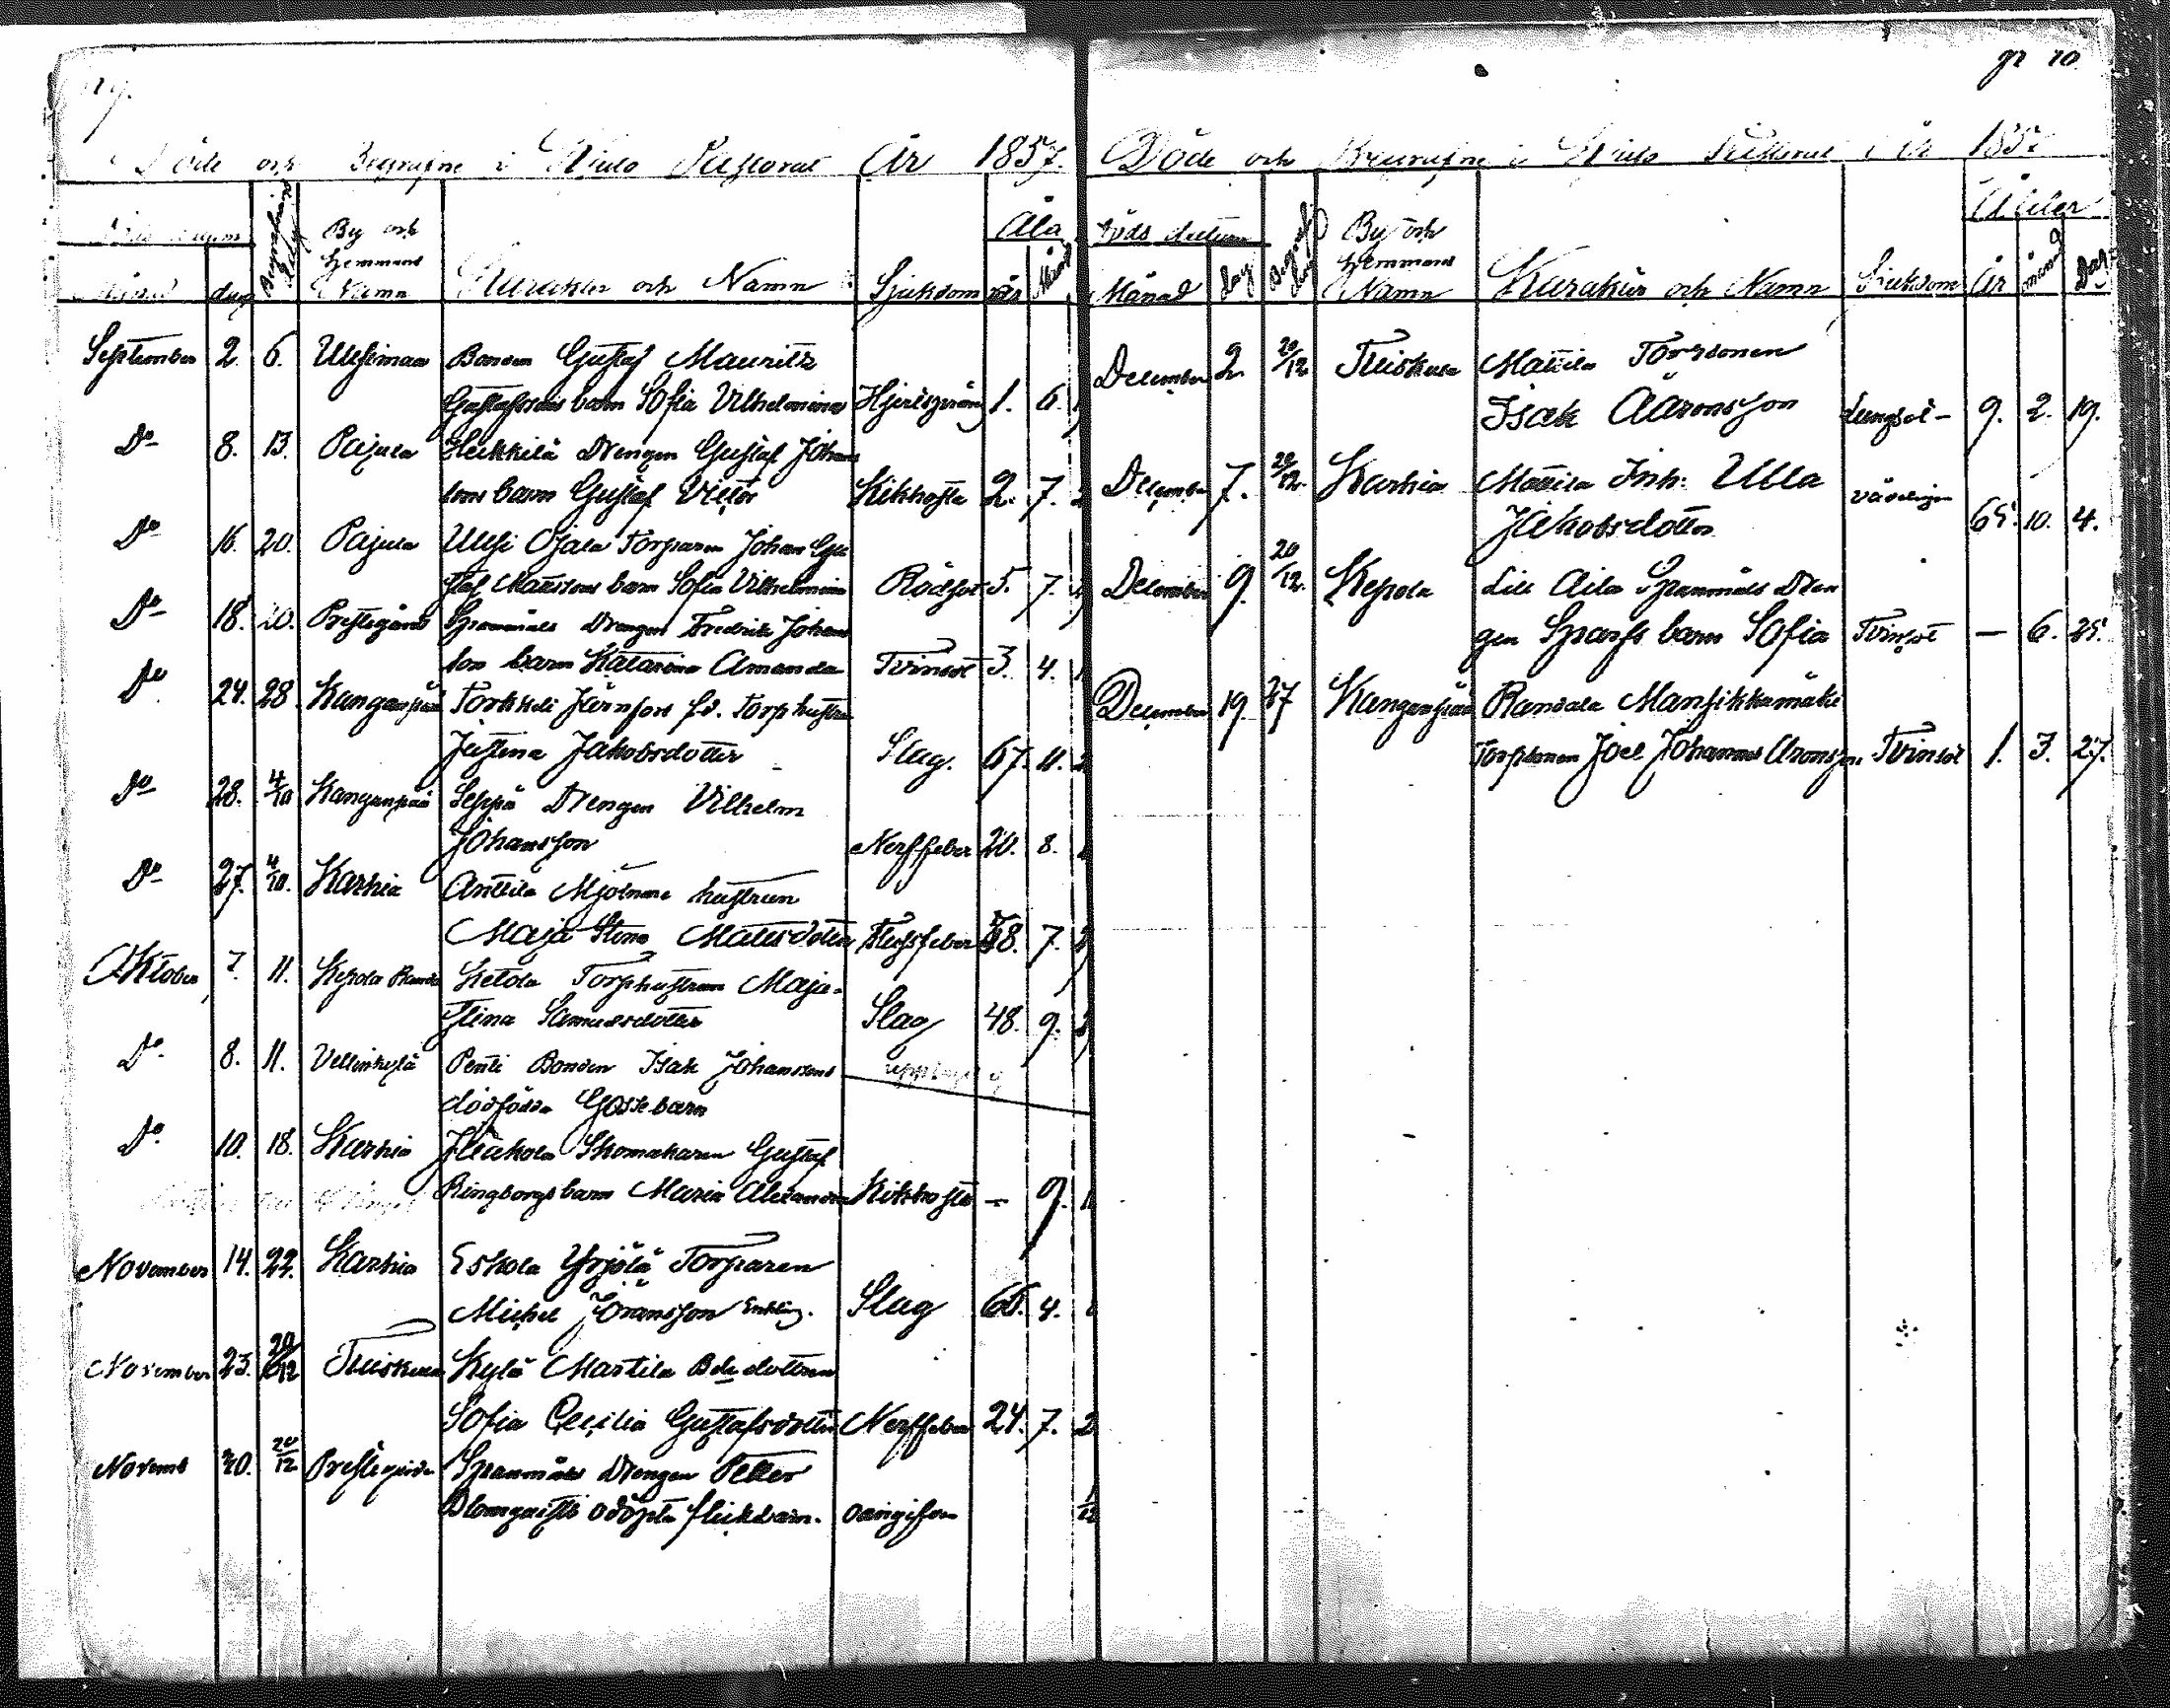 19.
Döde och Begrafne i Kiulo Pastorat År 1857.
Döds datum
Månad dag Begrafnings dag By och Hemmans Namn Karakter och Namn Sjukdom år Månad
September 2. 6. Bonden Gustaf Mauritz
Gustafssons barn Sofia Vilhelmina 1. 6.
Do 8. 13. Pajula Heikkilä Drengen Gustaf Johans
sons barn Gustaf Victor Kikhosta 2. 7.
Do 16. 20. Pajula Ojala Torparen Johan Gu
staf Matssons barn Sofia Vilhelmina Rödsot 5. 7.
Do 18. 20. Prestegård Spannmåls Drengen Fredrik Johans
son barn Katarina Amanda Tvinsot 3. 4.
Do 24. 28. Kanganpää Torkkeli Järnfors fd. Torp hustru
Justina Jakobsdotter Slag. 67. 11.
Do 28. 4/10 Kanganpää Seppä Drengen Vilhelm
Johansson Nerffeber 20. 8.
Do 27. 4/10. Karhia Anttila Mjölnare hustrun
Maja Stina Matsdotter 58. 7.
Oktober 7. 11. Kepola Ketola Torphustrun Maja
Stina Samuelsdotter Slag 48. 9.
Do 8. 11. Vellinkylä Pentti Bonden Isak Johanssons
dödfödda Gossebarn
Do 10. 18. Karhia Skomakaren Gustaf
Ringborgs barn Maria Alexandra Kikhosta — 9.
November 14. 22. Karhia Eskola Yrjölä Torparen
Michel Göransson Enkling. Slag 66. 4.
November 23. 20/12 Tuiskula Kylä Marttila Bde dottren
Sofia Cecilia Gustafsdotter Nerffeber 24. 7.
Novemb 30. 20/12 Prestegård Spannmåls Drengen Petter
Blomqvists odöpta flickbarn. oangifven
Döde och Begrafne i Kiulo Pastorat År 185
Döds datum Ålder
Månad dag Begrafn. dag By och Hemmans Namn Karaktär och Namn Sjukdom År månad Dagar
December 2 20/12 Tuiskula Mattila Torpsonen
Isak Aaronsson Lungsot 9. 2. 19.
December 7. 20/12. Karhia Mattila Inh: Ulla
Jakobsdotter 65. 10. 4.
December 9. 20/12. Kepola Lill Aila Spannmåls Dren
gen Sparfs barn Sofia Tvinsot — 6. 25.
December 19. 27 Kanganpää Randala Mansikkamäki
Torpsonen Joel Johannes Aronsson. Tvinsot 1. 3. 27.